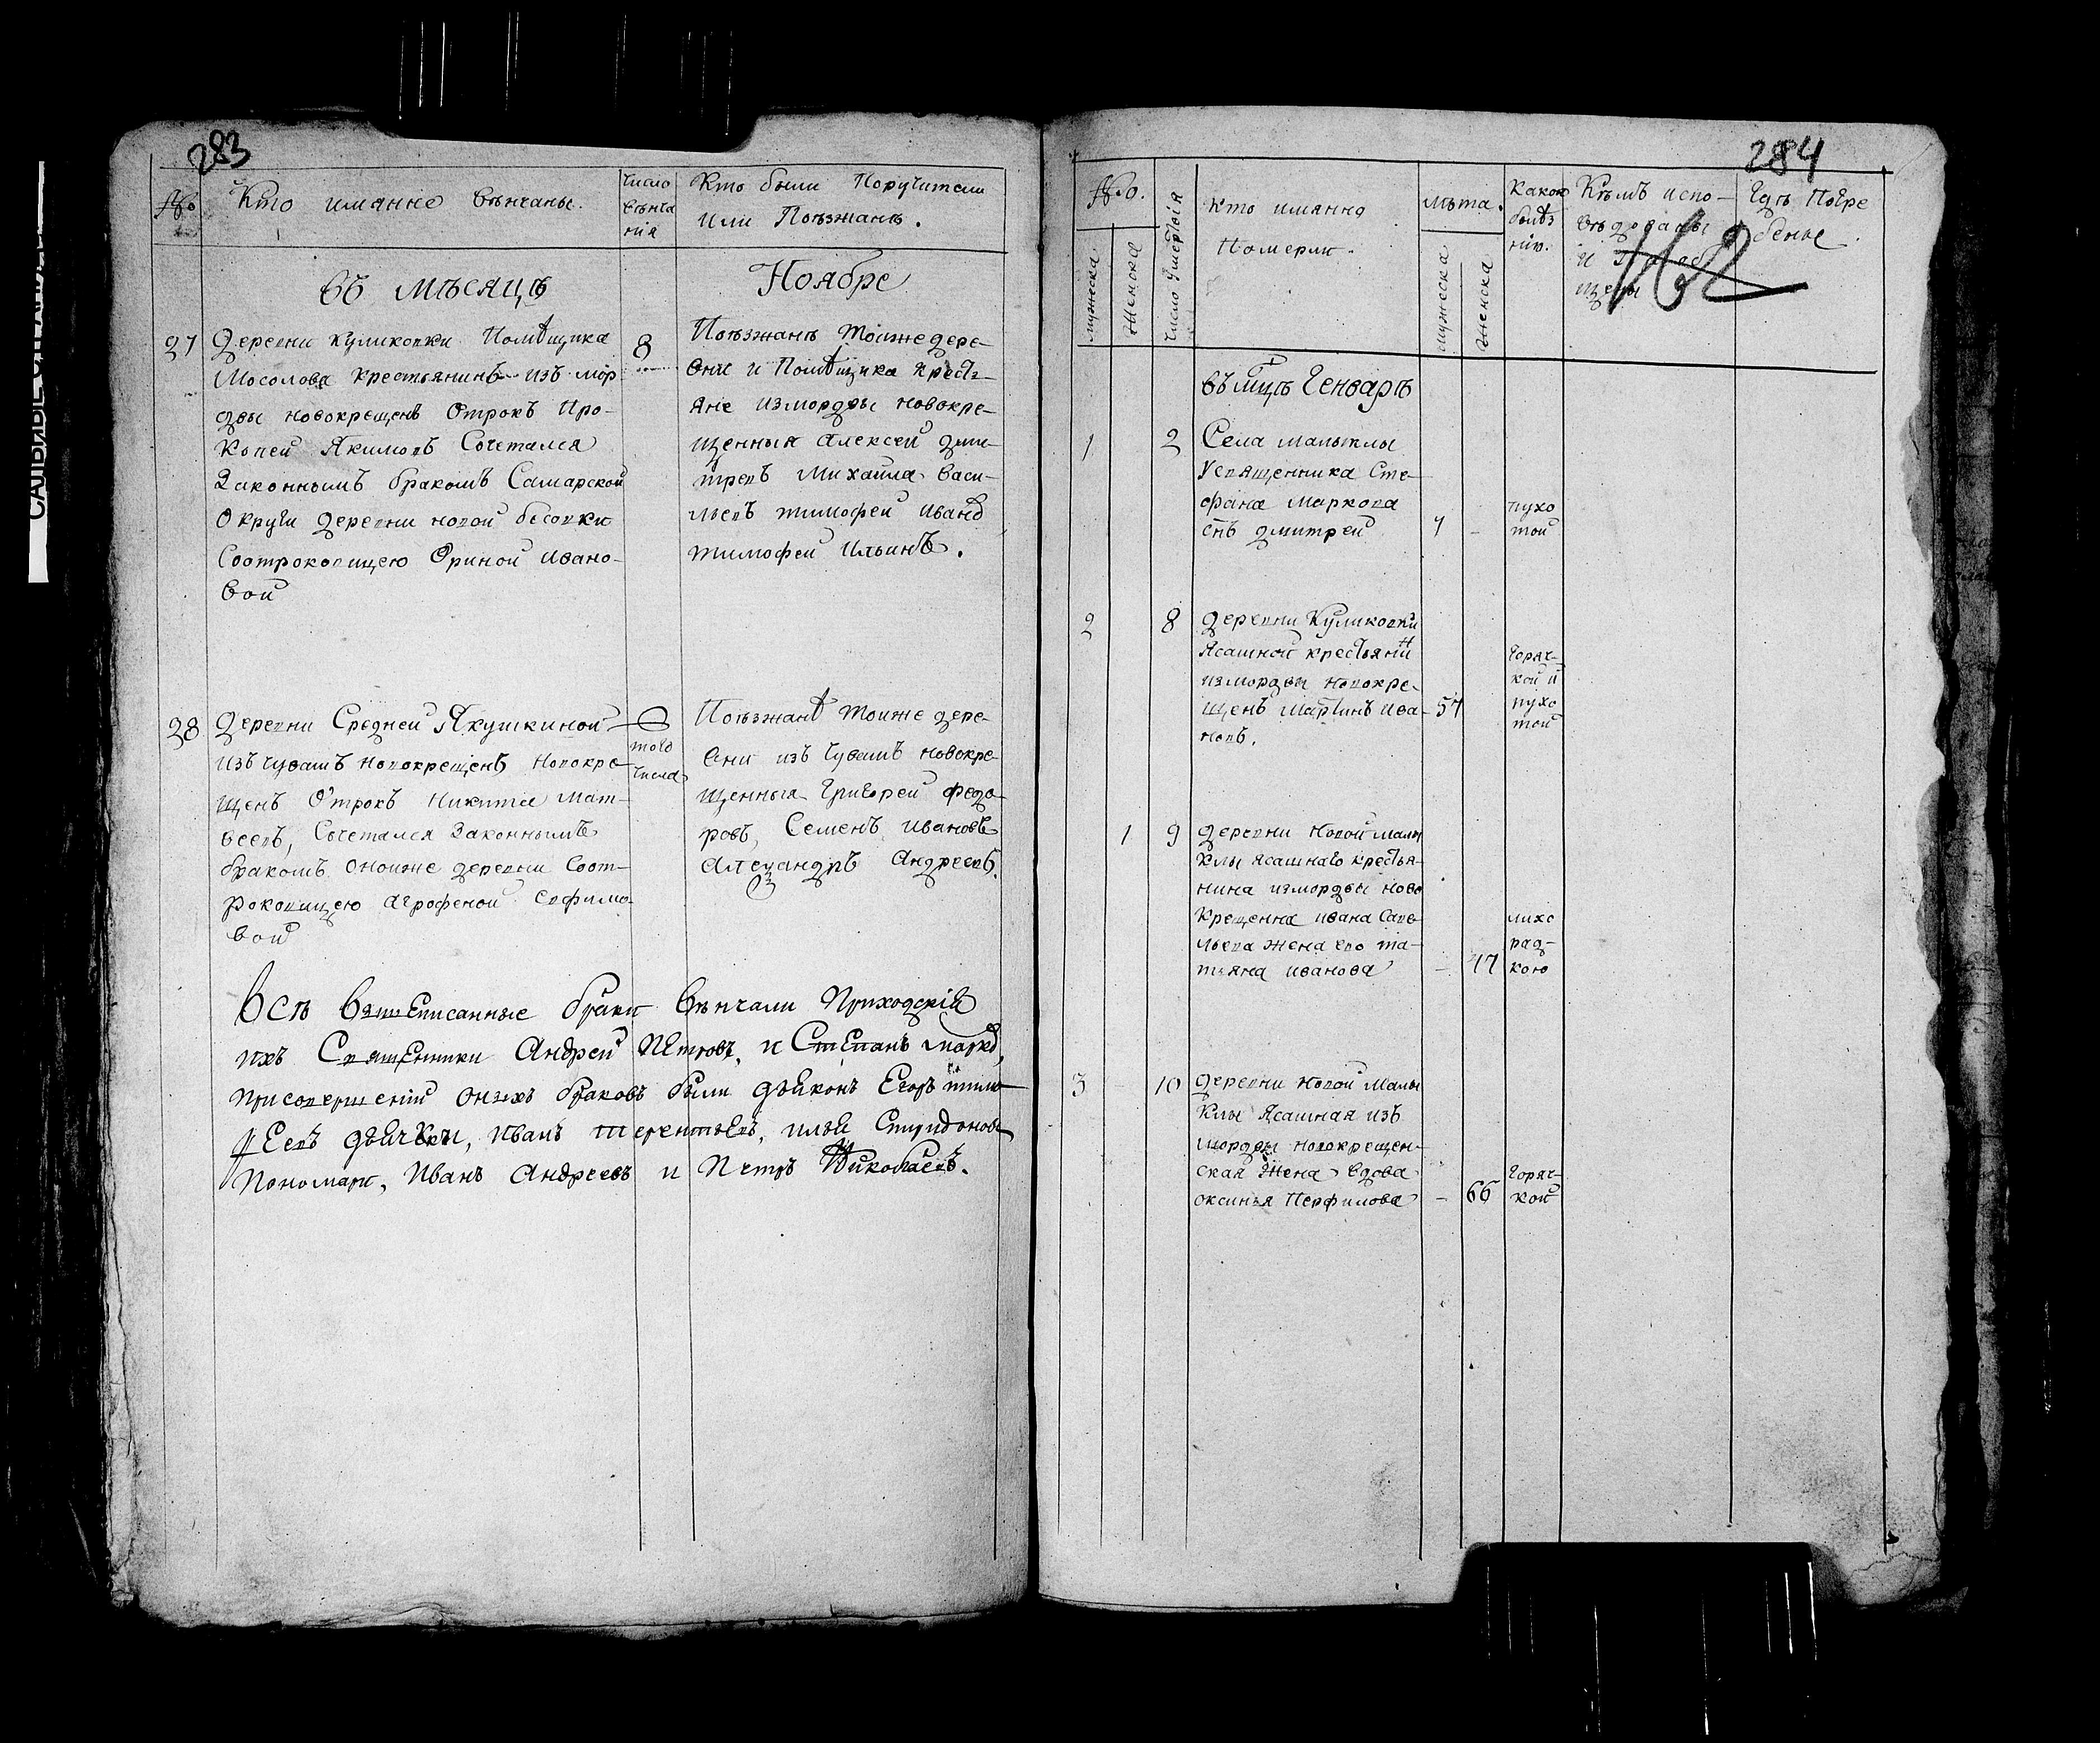 283
№
Кто имянне венчаны.
число
венча
нія
Кто были Поручители
или Поезжанѣ.
въ мѣсяцѣ
Ноябре
27
Деревни куликовки Помѣщика
Мосолова крестьянинъ изъ мор
двы новокрещенъ Отрокъ Про-
копей Якимовъ Сочетался
Законнымъ бракомъ Самарской
Округи деревни новой бесовки
Соотроковицею Ориной Ивано-
вой
8
Поѣзжанѣ тоижедере-
вни и Помѣщика крестъ-
яне измордвы новокре-
щенныя Алексей Дми-
тревъ Михаила васи-
льевъ тимофей Иванъ
тимофей Ильинъ.
28
Деревни Средней Якушкиной
изъ чувашъ новокрещенъ новокре
щенъ Отрокъ Никита Мат-
веевъ, Сочетался Законнымъ
бракомъ оноиже деревни Соот-
роковицею агрофеной ефимо
вой
того
числа
Поѣзжанѣ тоиже дере-
вни изъ чувашъ новокре
щенныя Григорей федо
ровъ, Семенъ ивановъ
Александръ Андреевъ.
Всѣ вышеписанные браки венчали Приходскія
ихъ Священники Андрей Петровъ, и Степанъ марко,
присовершеніи оныхъ браковъ были дьяконъ Егоръ тимо
феевъ дьячки, Иванъ терентьевъ, илья Спиридоновъ
Пономари, Иванъ Андреевъ и Петръ Николаевъ.
284
№.
мужеска
женска
число умертвія
кто имянно
Померли.
лѣта.
мужеска
женска
какою
болѣз
нію.
Кѣмъ испо-
и
щены
Где Погре
бены
162
въ мцѣ Генварѣ
1
2
Села малыклы
Усвященника Сте-
фана Маркова
снъ дмитрей
пухо
той
2
8
деревни Куликовки
Ясашной крестьяни
измордвы новокре-
щенъ Мартинъ Ива
новъ.
57
горяч-
кой и
пухо
той
1
9
деревни новой малы
клы ясашнаго крестья-
нина измордвы ново
крещенна ивана Саве
льева жена ево та-
тьяна иванова
лихо
рад-
кою
3
10
деревни новой малы
клы Ясашная изъ
мордвы новокрещен-
ская жена вдова
оксинья Перфилова
66
горяч-
кой